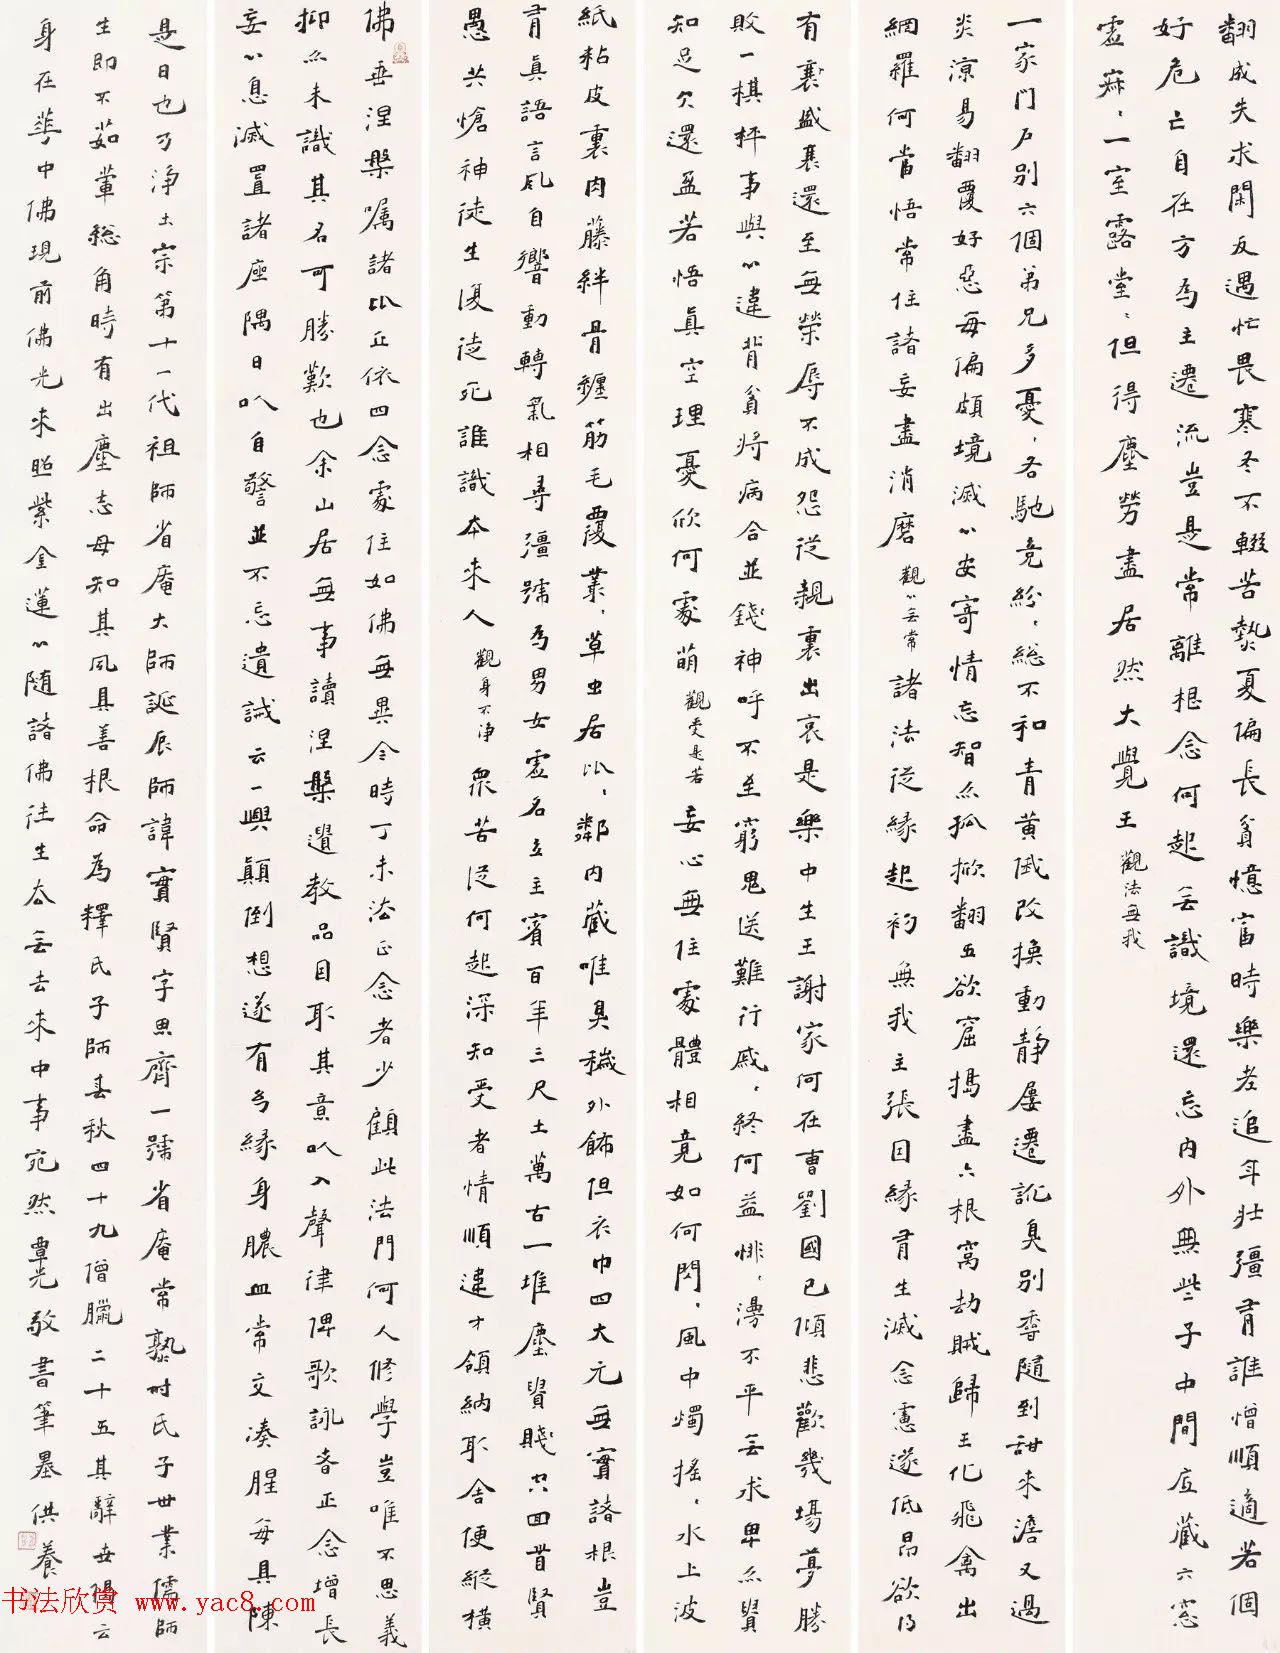 佛垂涅槃囑諸比丘依四念處住如佛無異今時丁未法正念者少顧此法門何人修學豈唯不思義
抑亦未識其名可勝歎也余山居無事讀涅槃遺教品因取其意以入聲律俾歌詠者正念增長
妄心息滅置諸座隅日以自警並不忘遺誡云一興顛倒想遂有幻緣身膿血常交湊腥每具陳
紙粘皮裹肉藤絆骨纏筋毛覆叢〻草虫居比〻鄰内藏唯臭穢外飾但衣巾四大元無實諸根豈
有真語言風自響動轉氣相尋彊號為男女虛名立主賓百年三尺土萬古一堆塵貴賤共回首賢
愚共愴神徒生復徒死誰識本來人 觀身不淨 衆苦從何起深知受者情順違才領納取舍便縱橫
有衰盛衰還至無榮辱不成怨從親裏出哀是樂中生王謝家何在曹劉國已傾悲歡幾場夢勝
敗一棋枰事與心違背貧將病合並錢神呼不至窮鬼送難行戚〻終何益悱〻漫不平無求卑亦貴
知足欠還盈若悟真空理憂欣何處萌 觀受是苦 妄心無住處體相竟如何閃〻風中燭搖〻水上波
一家門戶別六個弟兄多憂〻各馳競紛〻總不和青黃俄改換動靜屢遷訛臭別香隨到甜來澹又過
炎涼易翻覆好惡每偏頗境滅心安寄情忘智亦孤掀翻五欲窟搗盡六根窩劫賊歸王化飛禽出
網羅何當悟常住諸妄盡消磨 觀心無常 諸法從緣起初無我主張因緣有生滅念慮遂低昂欲得
翻成失求閑反遇忙畏寒冬不輟苦熱夏偏長貧憶富時樂老追年壯彊有誰憎順適若個
好危亡自在方為主遷流豈是常離根念何起無識境還忘内外無些子中間底藏六窓
虛寂〻一室露堂〻但得塵勞盡居然大覺王 觀法無我
是日也乃淨土宗第十一代祖師省庵大師誕辰師諱實賢字思齊一號省庵常熟時氏子世業儒師
生即不茹葷總角時有出塵志母知其夙具善根命為釋氏子師春秋四十九僧臘二十五其辭世偈云
身在華中佛現前佛光來照紫金蓮心隨諸佛往生去無去來中事宛然覃光敬書筆墨供養
书法欣赏 www.yac8.com